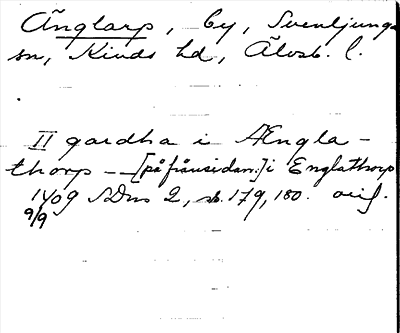 Änglarp, by, Svenljunga
sn, Kinds hd, Älvsb. l.
II gardha i Ængla-
thorp -- [på frånsidan:] i Englathorp
1409 SDns 2, s. 179, 180. orig.
9/9